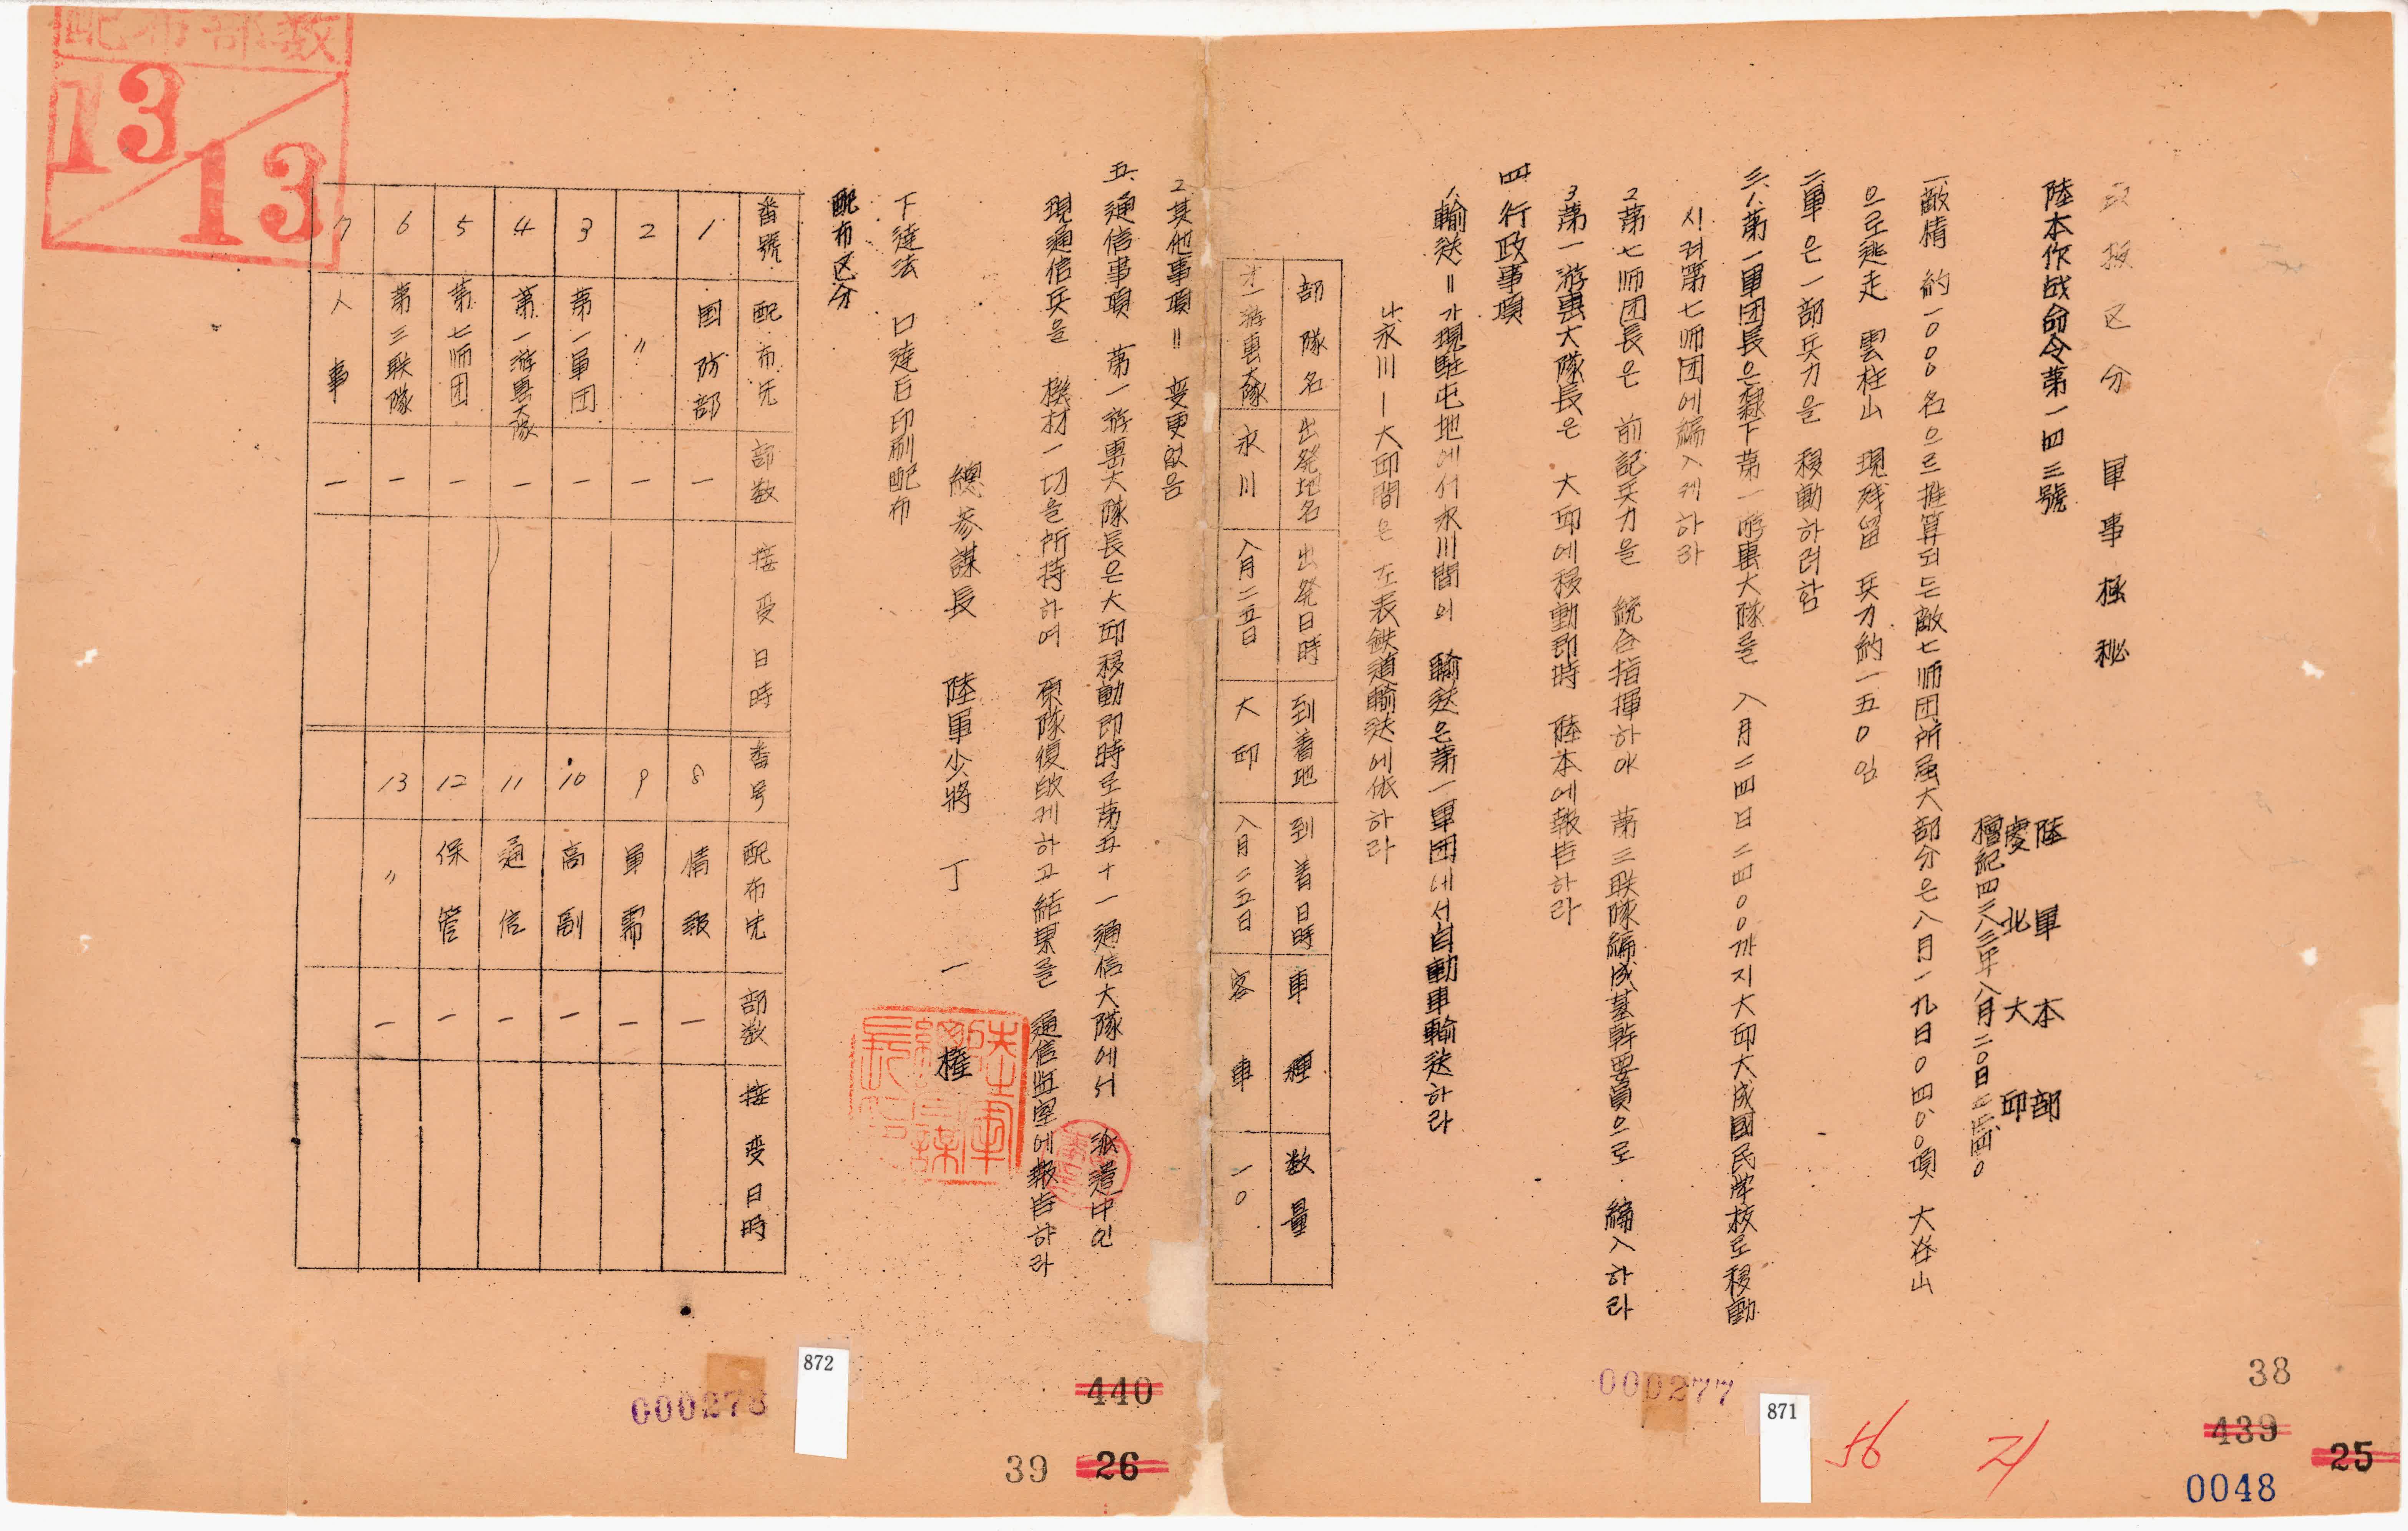 取扱区分 軍事極秘
陸本作战命令第一四三號
陸軍本部
慶北大邱
檀紀四二八三年八月二0日
一、敵情 約一000名으로推算되든敵七师団所属大部分은八月一九日0四00頃 大谷山
으로逃走 雲柱山 現残留 兵力約一五0임
二、軍은一部兵力을 移動하려함
三、1、第一軍団長은隷下第一游擊大隊를 八月二四日二四00까지大邱大成國民学校로移動
시켜第七师団에編入케하라
2 第七师団長은 前記兵力을 統合指揮하야 第三联隊編成基幹要員으로 編入하라
3 第一游擊大隊長은 大邱에移動即時 陸本에報告하라
四、行政事項
1、輸送〃가現駐屯地에서永川間의 輸送은第一軍団에서自動車輸送하라
나永川—大邱間은 左表鉄道輸送에依하라
部隊名 出発地名 出発日時 到着地 到着日時 車種 数量
才一游擊大隊 永川 八月二五日 大邱 八月二五日 客車 一0
2 其他事項〃 変更없음
五、通信事項 第一游擊大隊長은大邱移動即時로第五十一通信大隊에서 派遣中인
現通信兵을 機材一切을所持하여 原隊復歸케하고結果를 通信監室에報告하라
總参謀長 陸軍少將 丁一權
下達法 口達后印刷配布
配布区分
番號 配布先 部数 接受日時 番号 配布先 部数 接受日時
1 国防部 一 8 情報 一
2 〃 一 9 軍需 一
3 第一軍団 一 10 高副 一
4 第一游擊大隊 一 11 通信 一
5 第七师団 一 12 保管 一
6 第三联隊 一 13 〃 一
7 人事 一
配布部数
13/13
871
000277
38
439
25
0048
872
000278
440
39
26